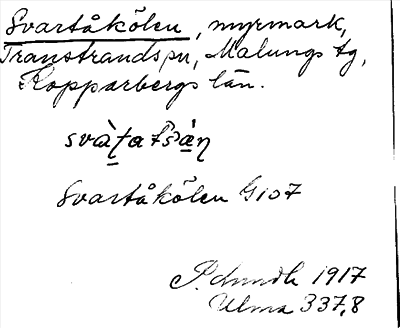 Svartåkölen, myrmark,
Transtrands sn, Malungs tg,
Kopparbergs län.
Svartåkölen G107
P. Lundh 1917
Ulma 337,8